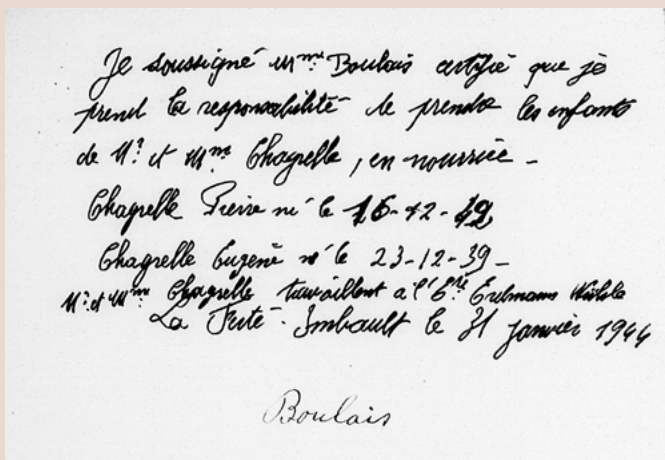 Je soussigné Mme Boulais certifié que je
prend la responsabilité de prendre les enfants
de Mr et Mme Chagrelle, en nourrice -
Chagrelle Pierre né le 16-12-42
Chagrelle Eugene né le 23-12-39 -
Mr et Mme Chagrelle travaillent a l'Ets Erdmann
La Ferté-Imbault le 31 janvier 1944
Boulais